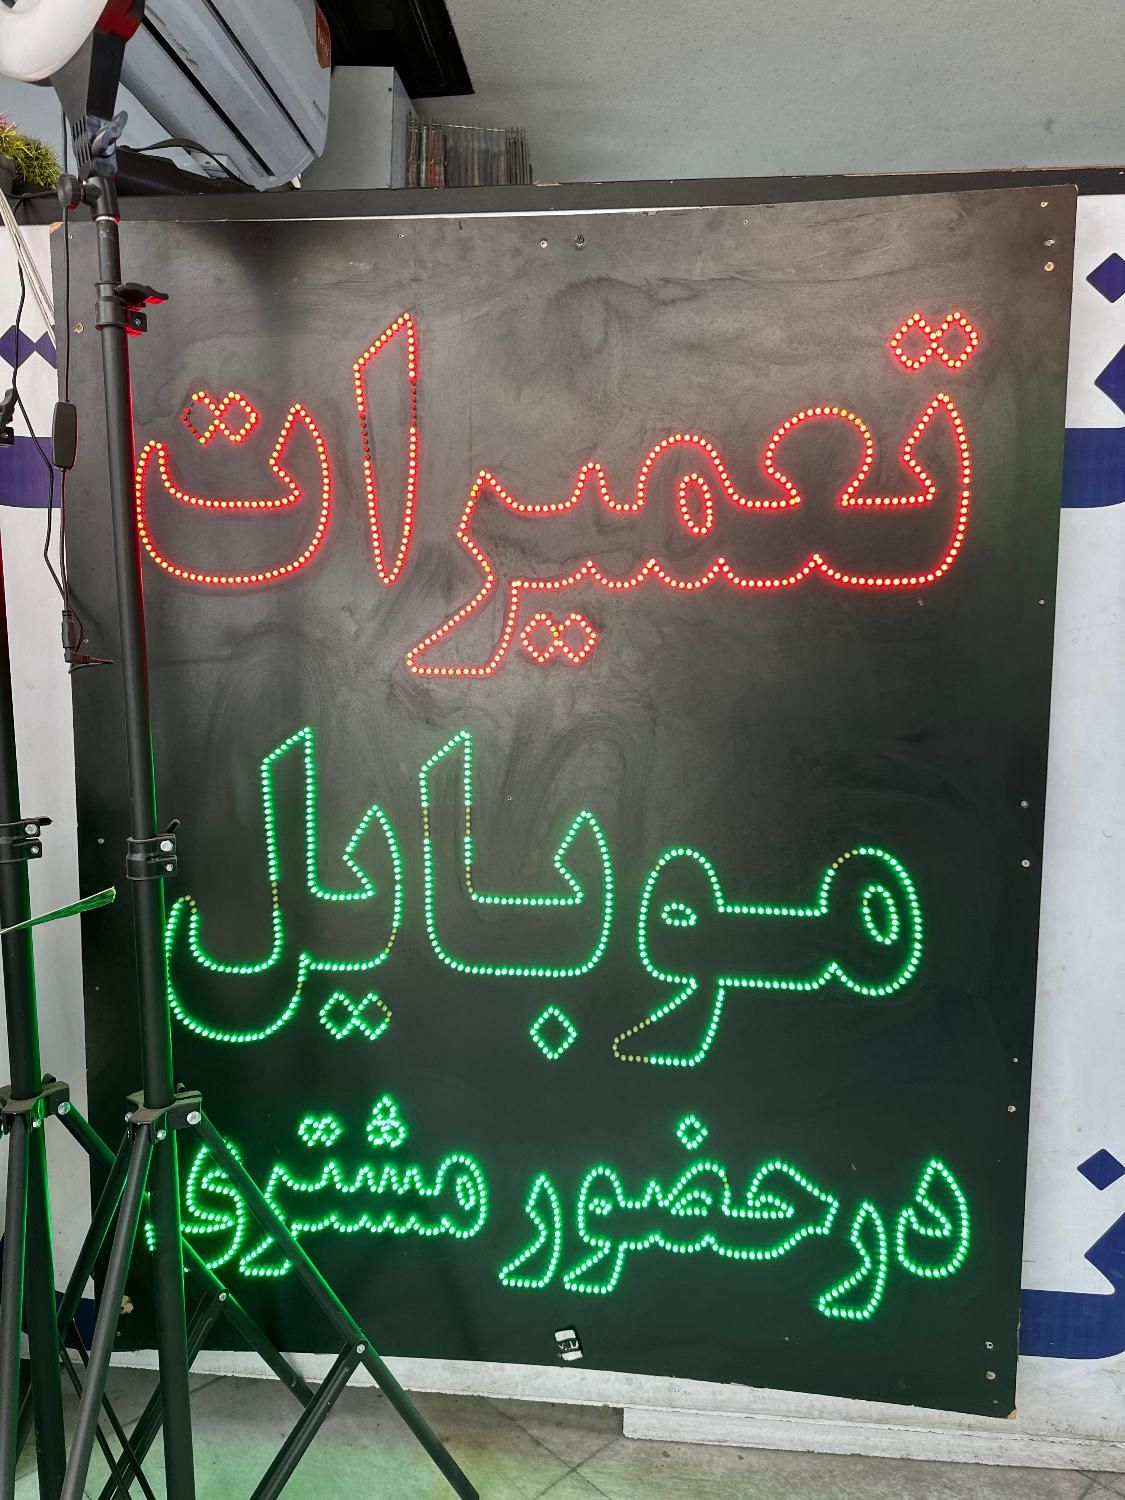 تعمیرات
موبایل
در حضور مشتری